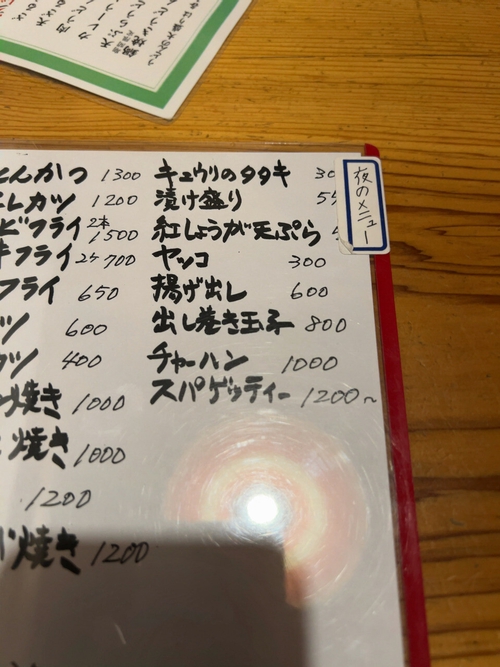 夜のメニュー
とんかつ 1300
レカツ 1200
ビフライ 2本 1500
キフライ 2ケ 700
フライ 650
ツ 600
カツ 400
焼き 1000
焼き 1000
1200
焼き 1200
キュウリのタタキ 30
漬け盛り 5
紅しょうが天ぷら
ヤッコ 300
揚げ出し 600
出し巻き玉子 800
チャーハン 1000
スパゲッティー 1200~